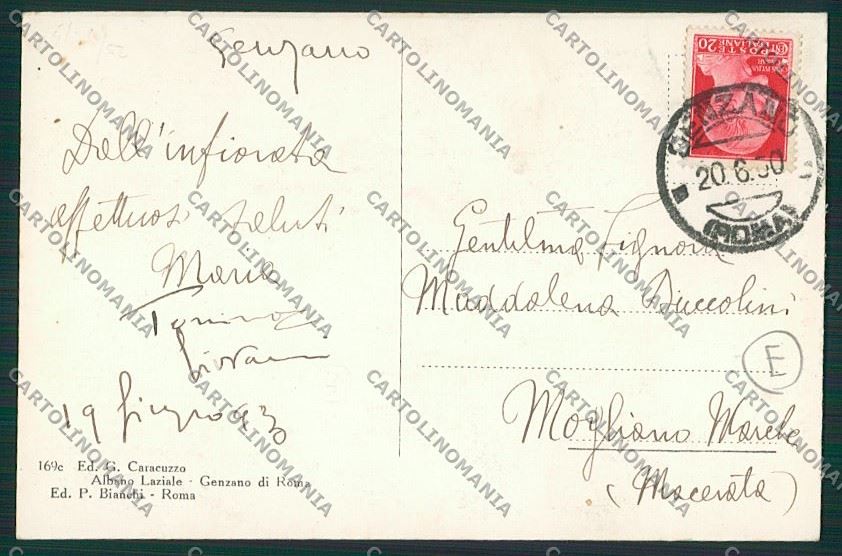 Genzano
Dall'infiorata
affettuosi saluti
Maria
Giovanni
19 giugno 930
169c Ed. G. Caracuzzo
Albano Laziale - Genzano di Roma
Ed. P. Bianchi - Roma
POSTE ITALIANE
CENT 20
GENZANO
20.6.30
(ROMA)
Gentilma Signora
Maddalena Buccolini
E
Mogliano Marche
(Macerata)
CARTOLINOMANIA